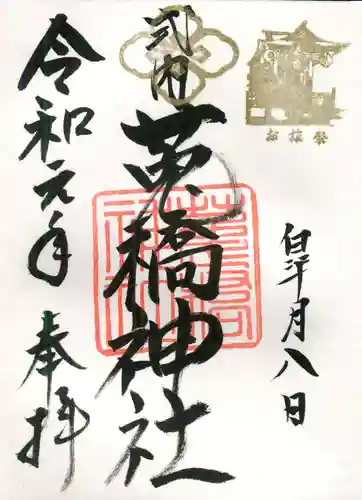 お旅祭
皐月八日
式内
菟橋神社
令和元年
奉拝